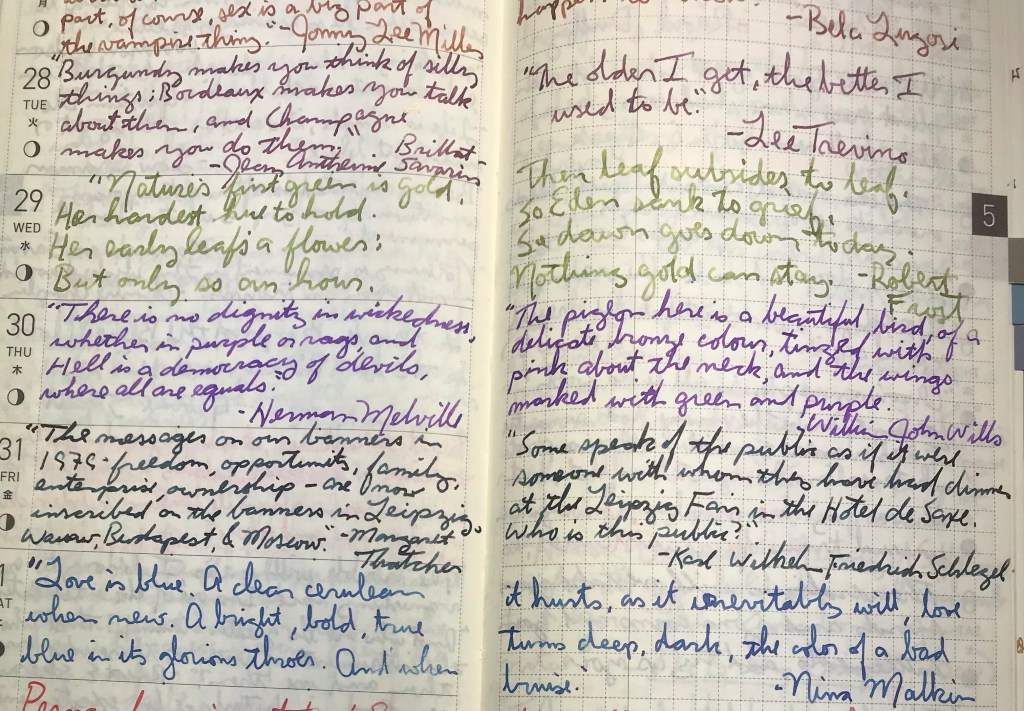 part, of course, sex is a big part of
the vampire thing." - Jonny Lee Miller
28
TUE
火
"Burgundy makes you think of silly
things; Bordeaux makes you talk
about them, and Champagne
makes you do them." Brillat-
- Jean Anthelme Savarin
29
WED
水
"Nature's first green is gold,
Her hardest hue to hold.
Her early leaf's a flower;
But only so an hour.
30
THU
木
"There is no dignity in wickedness,
whether in purple or rags, and
Hell is a democracy of devils,
where all are equals."
- Herman Melville
31
FRI
金
"The messages on our banners in
1979 - freedom, opportunity, family,
enterprise, ownership - are now
inscribed on the banners in Leipzig,
Warsaw, Budapest, & Moscow." - Margaret
Thatcher
1
"Love is blue. A clear cerulean
when new. A bright, bold, true
blue in its glorious throes. And when
- Bela Lugosi
"The older I get, the better I
used to be."
- Lee Trevino
Then leaf subsides to leaf.
So Eden sank to grief,
So dawn goes down to day.
Nothing gold can stay. - Robert
Frost
5
"The pigeon here is a beautiful bird, of a
delicate bronze colour, tinged with
pink about the neck, and the wings
marked with green and purple.
- William John Wills
"Some speak of the public as if it were
someone with whom they have had dinner
at the Leipzig Fair in the Hotel de Saxe.
Who is this public?"
- Karl Wilhelm Friedrich Schlegel
it hurts, as it inevitably will, love
turns deep, dark, the color of a bad
bruise."
- Nina Malkin